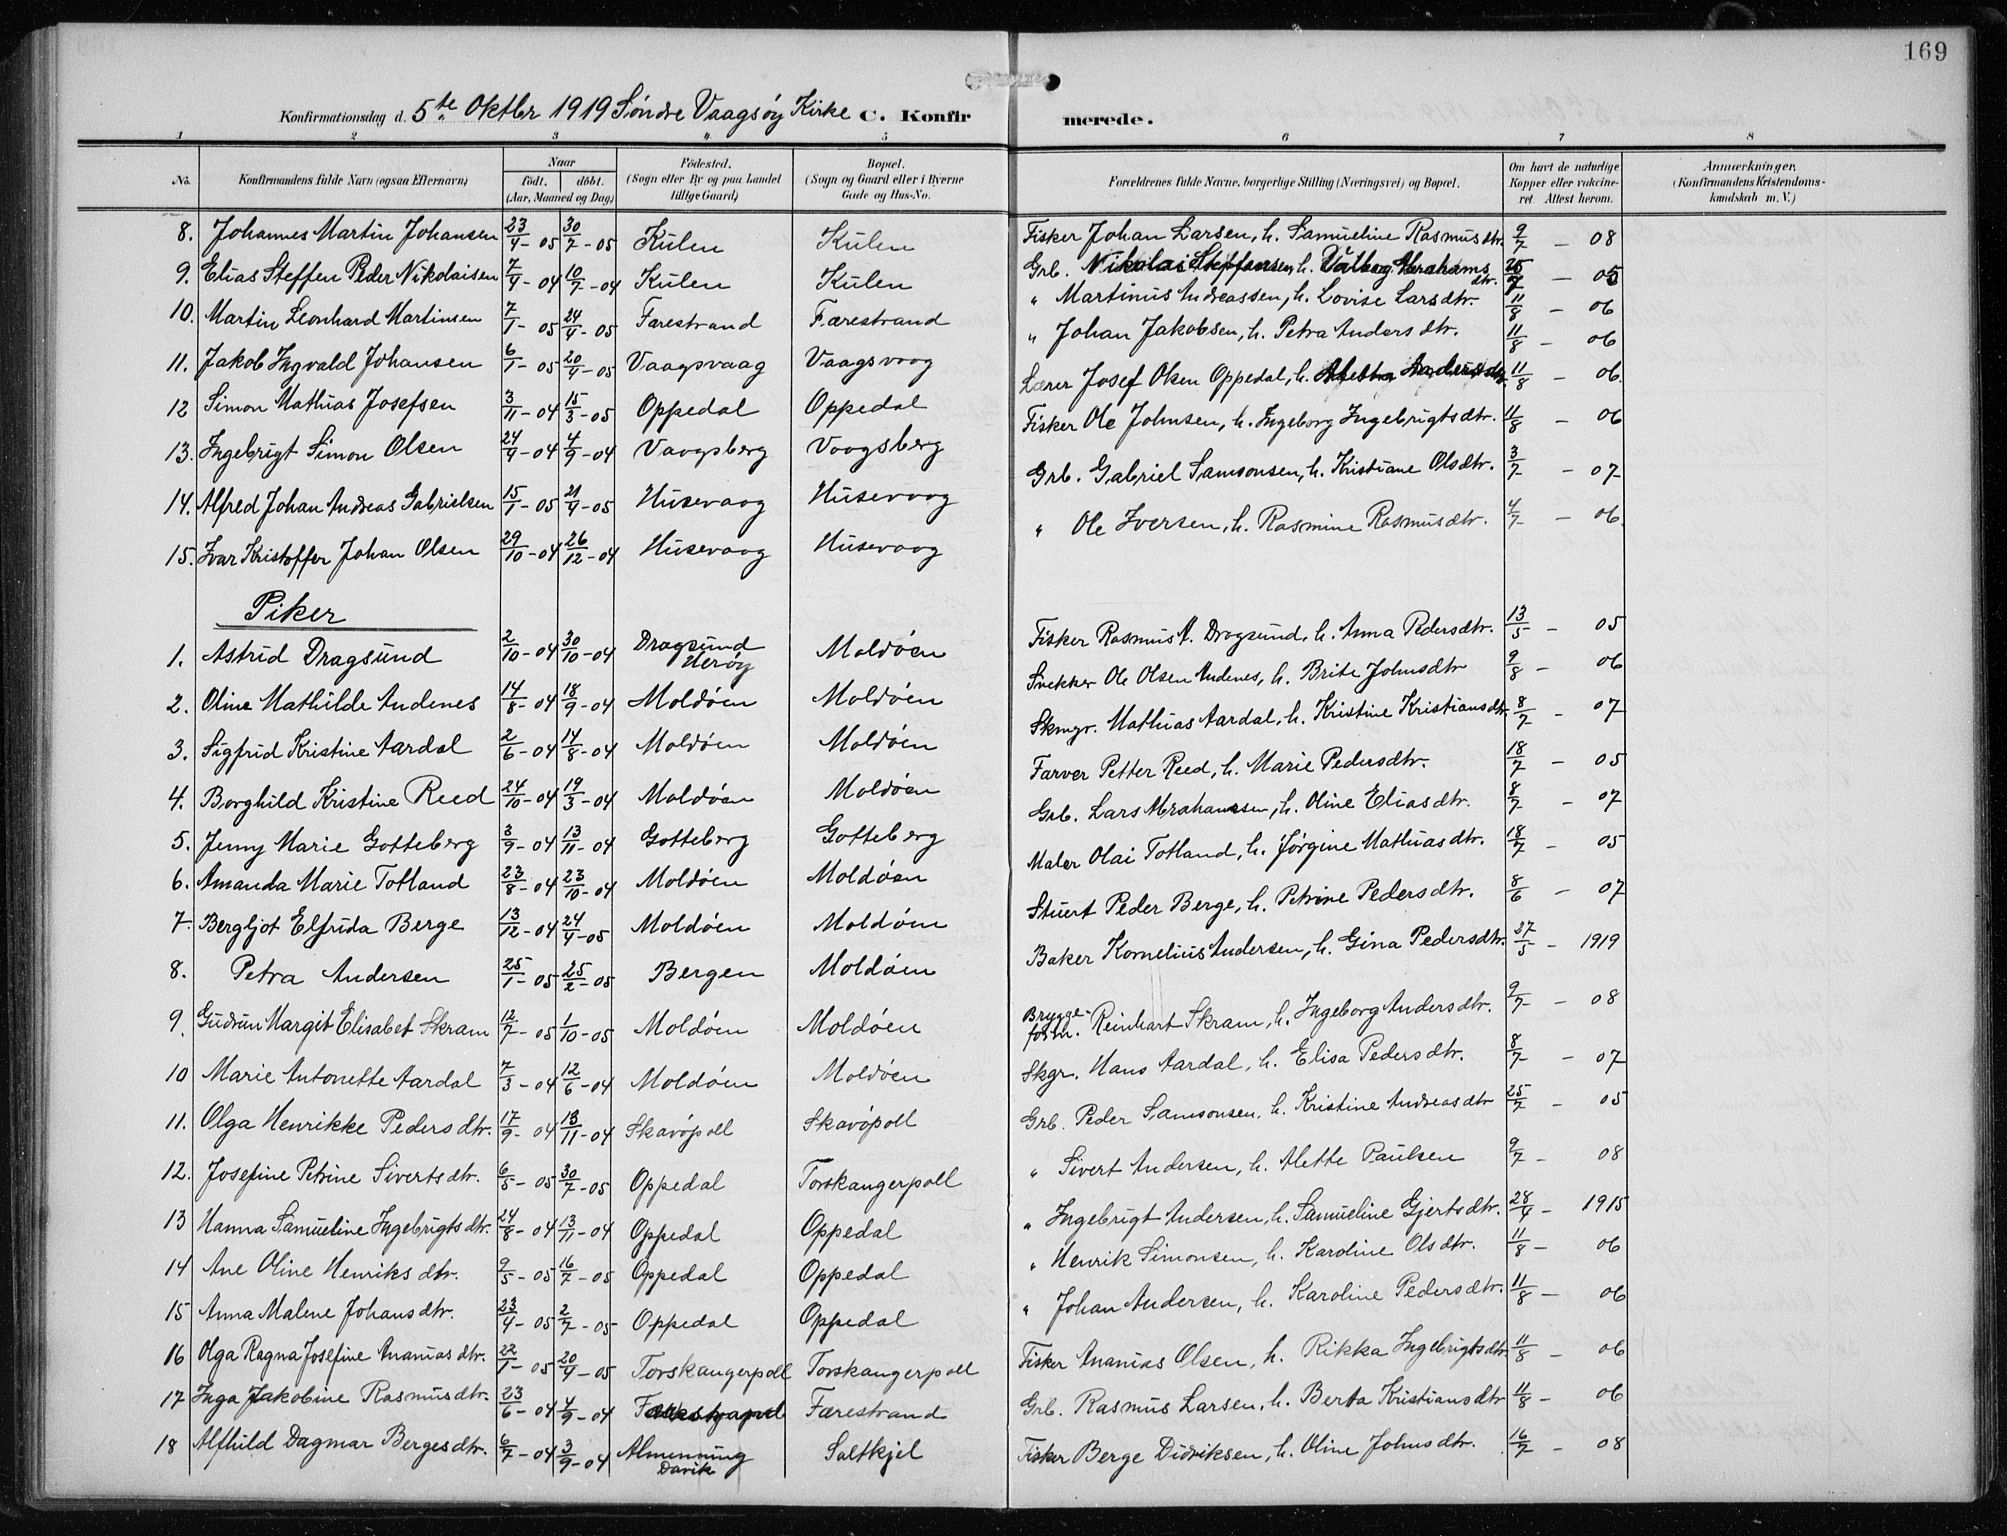 169
Konfirmationsdag d. 5te Oktbr 1919 Søndre Vaagsøy Kirke C. Konfirmerede.
1 2 3 4 5 6 7 8
No. Konfirmandens fulde Navn (ogsaa Efternavn) Naar født. døbt. (Aar, Maaned og Dag) Födested. (Sogn eller By og paa Landet tillige Gaard) Bopæl. (Sogn og Gaard eller i Byerne Gade og Hus-No. Forældrenes fulde Navne, borgerlige Stilling (Næringsvei) og Bopæl. Om havt de naturlige Kopper eller vakcineret Attest herom. Anmærkninger. (Konfirmandens Kristendomskundskab m. V.)
8. Johannes Martin Johansen 23/4-05 30/7-05 Kulen Kulen Fisker Johan Larsen, h. Samueline Rasmusdtr. 9/7 - 08
9. Elias Steffen Peder Nikolaisen 7/9-04 10/7-04 Kulen Kulen Grb. Nikolai Steffensen, h. Valborg Abrahamsdtr. 25/7 - 05
10. Martin Leonhard Martinsen 7/1-05 24/4-05 Færestrand Færestrand " Martinus Andreassen, h. Lovise Larsdtr. 11/8 - 06
11. Jakob Ingvald Johansen 6/1-05 20/4-05 Vaagsvaag Vaagsvaag " Johan Jakobsen, h. Petra Andersdtr. 11/8 - 06
12 Simon Mathias Josefsen 3/11-04 15/3-05 Oppedal Oppedal Lærer Josef Olsen Oppedal, h. Andersdtr. 11/8 - 06.
13. Ingebrigt Simon Olsen 24/4-04 4/9-04 Vaagsberg Vaagsberg Fisker Ole Johnsen, h. Ingeborg Ingebrigtsdtr. 11/8 - 06
14. Alfred Johan Andreas Gabrielsen 15/1-05 21/4-05 Husevaag Husevaag Grb. Gabriel Samsonsen, h. Kristiane Olsdtr. 3/7 - 07
15. Ivar Kristoffer Johan Olsen 29/10-04 26/12-04 Husevaag Husevaag " Ole Iversen, h. Rasmine Rasmusdtr. 4/7 - 06.
Piker
1. Astrid Dragsund 2/10-04 30/10-04 Dragsund Herøy Moldøen Fisker Rasmus A. Dragsund, h. Anna Pedersdtr. 13/5 - 05
2. Oline Mathilde Andenes 14/8-04 18/9-04 Moldøen Moldøen Snekker Ole Olsen Andenes, h. Brite Johnsdtr 9/8 - 06
3. Sigfrid Kristine Aardal 2/6-04 14/8-04 Moldøen Moldøen Skmgr. Mathias Aardal, h. Kristine Kristiansdtr. 8/7 - 07
4. Borghild Kristine Reed 24/10-04 19/3-04 Moldøen Moldøen Farver Petter Reed, h. Marie Pedersdtr. 18/7 - 05
5. Jenny Marie Gotteberg 3/9-04 13/11-04 Gotteberg Gotteberg Grb. Lars Abrahamsen, h. Oline Eliasdtr. 8/7 - 07
6. Amanda Marie Totland 23/8-04 23/10-04 Moldøen Moldøen Maler Olai Totland, h. Jørgine Mathiasdtr. 18/7 - 05
7. Bergljot Elfrida Berge 13/12-04 24/4-05 Moldøen Moldøen Stuert Peder Berge, h. Petrine Pedersdtr. 8/6 - 07
8. Petra Andersen 25/1-05 25/2-05 Bergen Moldøen Baker Kornelius Andersen, h. Gina Pedersdtr. 27/5 - 1919
9. Gudrun Margit Elisabet Skram 12/7-05 1/10-05 Moldøen Moldøen Bryggeform. Reinhart Skram, h. Ingeborg Andersdtr. 9/7 - 08
10 Marie Antonette Aardal 7/3-04 12/6-04 Moldøen Moldøen Skgr. Hans Aardal, h. Elisa Pedersdtr. 8/7 - 07
11. Olga Henrikke Pedersdtr. 17/9-04 13/11-04 Skavøpoll Skavøpoll Grb. Peder Samsonsen, h. Kristine Andreasdtr 25/7 - 05
12. Josefine Petrine Sivertsdtr. 6/5-05 30/7-05 Oppedal Torskangerpoll " Sivert Andersen, h. Alette Paulsen 9/7 - 08
13 Hanna Samueline Ingebrigtsdtr. 24/8-04 13/11-04 Oppedal Oppedal " Ingebrigt Andersen, h. Samueline Gjertsdtr. 28/4 - 1915
14 Ane Oline Henriksdtr. 9/5-05 16/7-05 Oppedal Oppedal " Henrik Simonsen, h. Karoline Olsdtr. 11/8 - 06
15 Anna Malene Johansdtr. 23/4-05 2/7-05 Oppedal Oppedal " Johan Andersen, h. Karoline Pedersdtr. 11/8 - 06
16 Olga Ragna Josefine Ananiasdtr. 22/1-05 20/4-05 Torskangerpoll Torskangerpoll Fisker Ananias Olsen, h. Rikka Ingebrigtsdtr. 11/8 - 06
17 Inga Jakobine Rasmusdtr. 23/6-04 4/9-04 Færestrand Grb. Rasmus Larsen, h. Berta Kristiansdtr 11/8 - 06
18 Alfhild Dagmar Bergesdtr. 6/7-04 3/9-04 Almenning Davik Saltkjel Fisker Berge Didriksen, h. Oline Johnsdtr. 16/7 - 08